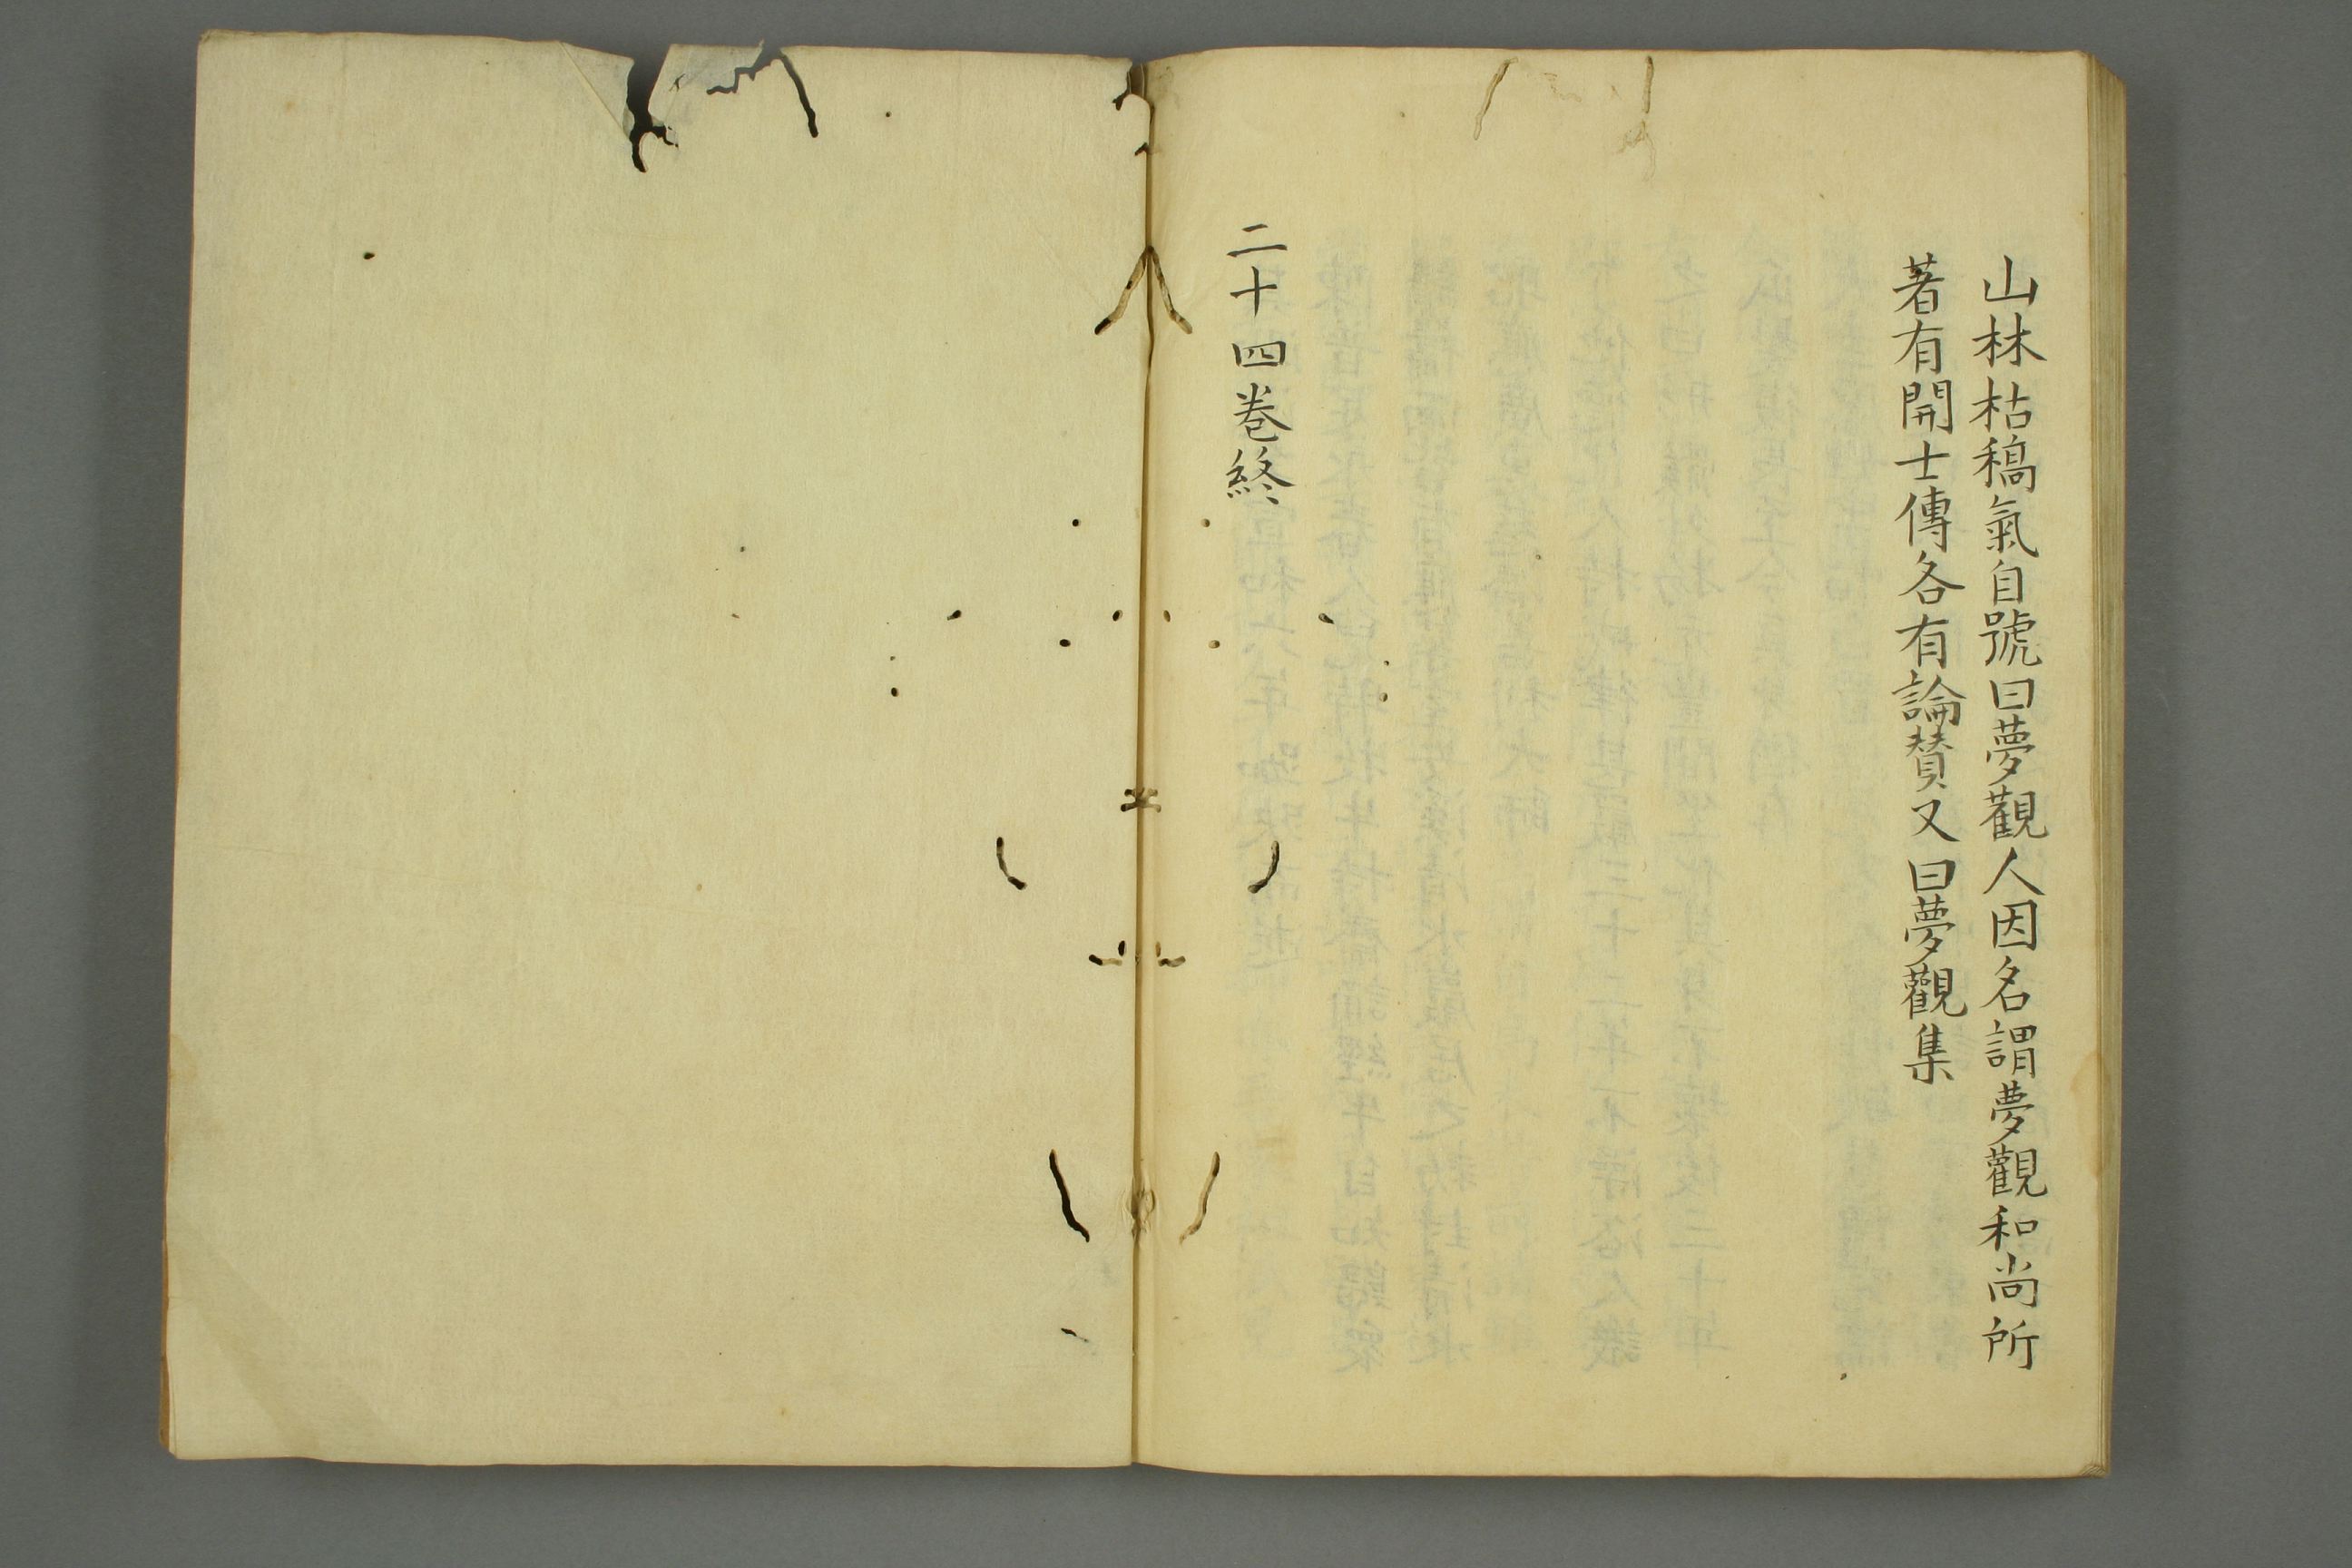 山林枯稿氣自號曰夢觀人因名謂夢觀和尚所
著有開士傳各有論賛又曰夢觀集
二十四巻終